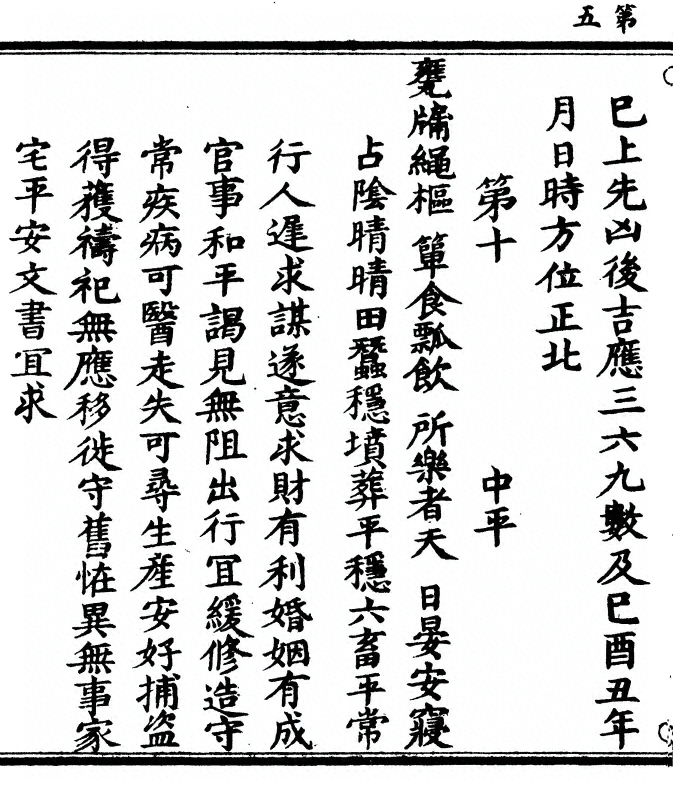 第五
巳上先凶後吉應三六九數及巳酉丑年
月日時方位正北
第十 中平
甕牖繩樞 簞食瓢飲 所樂者天 日晏安寢
占陰晴晴田蠶穩墳葬平穩六畜平常
行人遲求謀遂意求財有利婚姻有成
官事和平謁見無阻出行冝緩修造守
常疾病可醫走失可尋生產安好捕盗
得獲禱祀無應移徙守舊恠異無事家
宅平安文書冝求